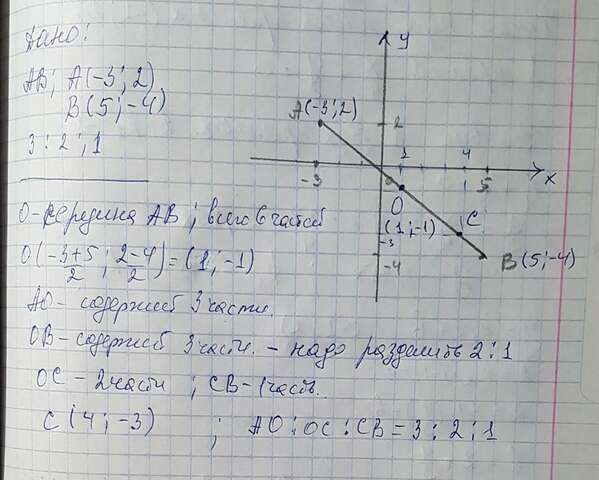 Дано:
AB; A(-3; 2)
B(5; -4)
3 : 2 : 1
О-середина AB; всего 6 частей
O(-3+5/2; 2-4/2) = (1, -1)
AO - содержит 3 части.
OB - содержит 3 части. - надо разделить 2:1
OC - 2 части; CB - 1 часть.
C(4; -3) ; AO : OC : CB = 3 : 2 : 1
y
A(-3; 2)
2
1
4
-3
5
x
0
O
(1, -1)
C
-3
-4
B(5; -4)